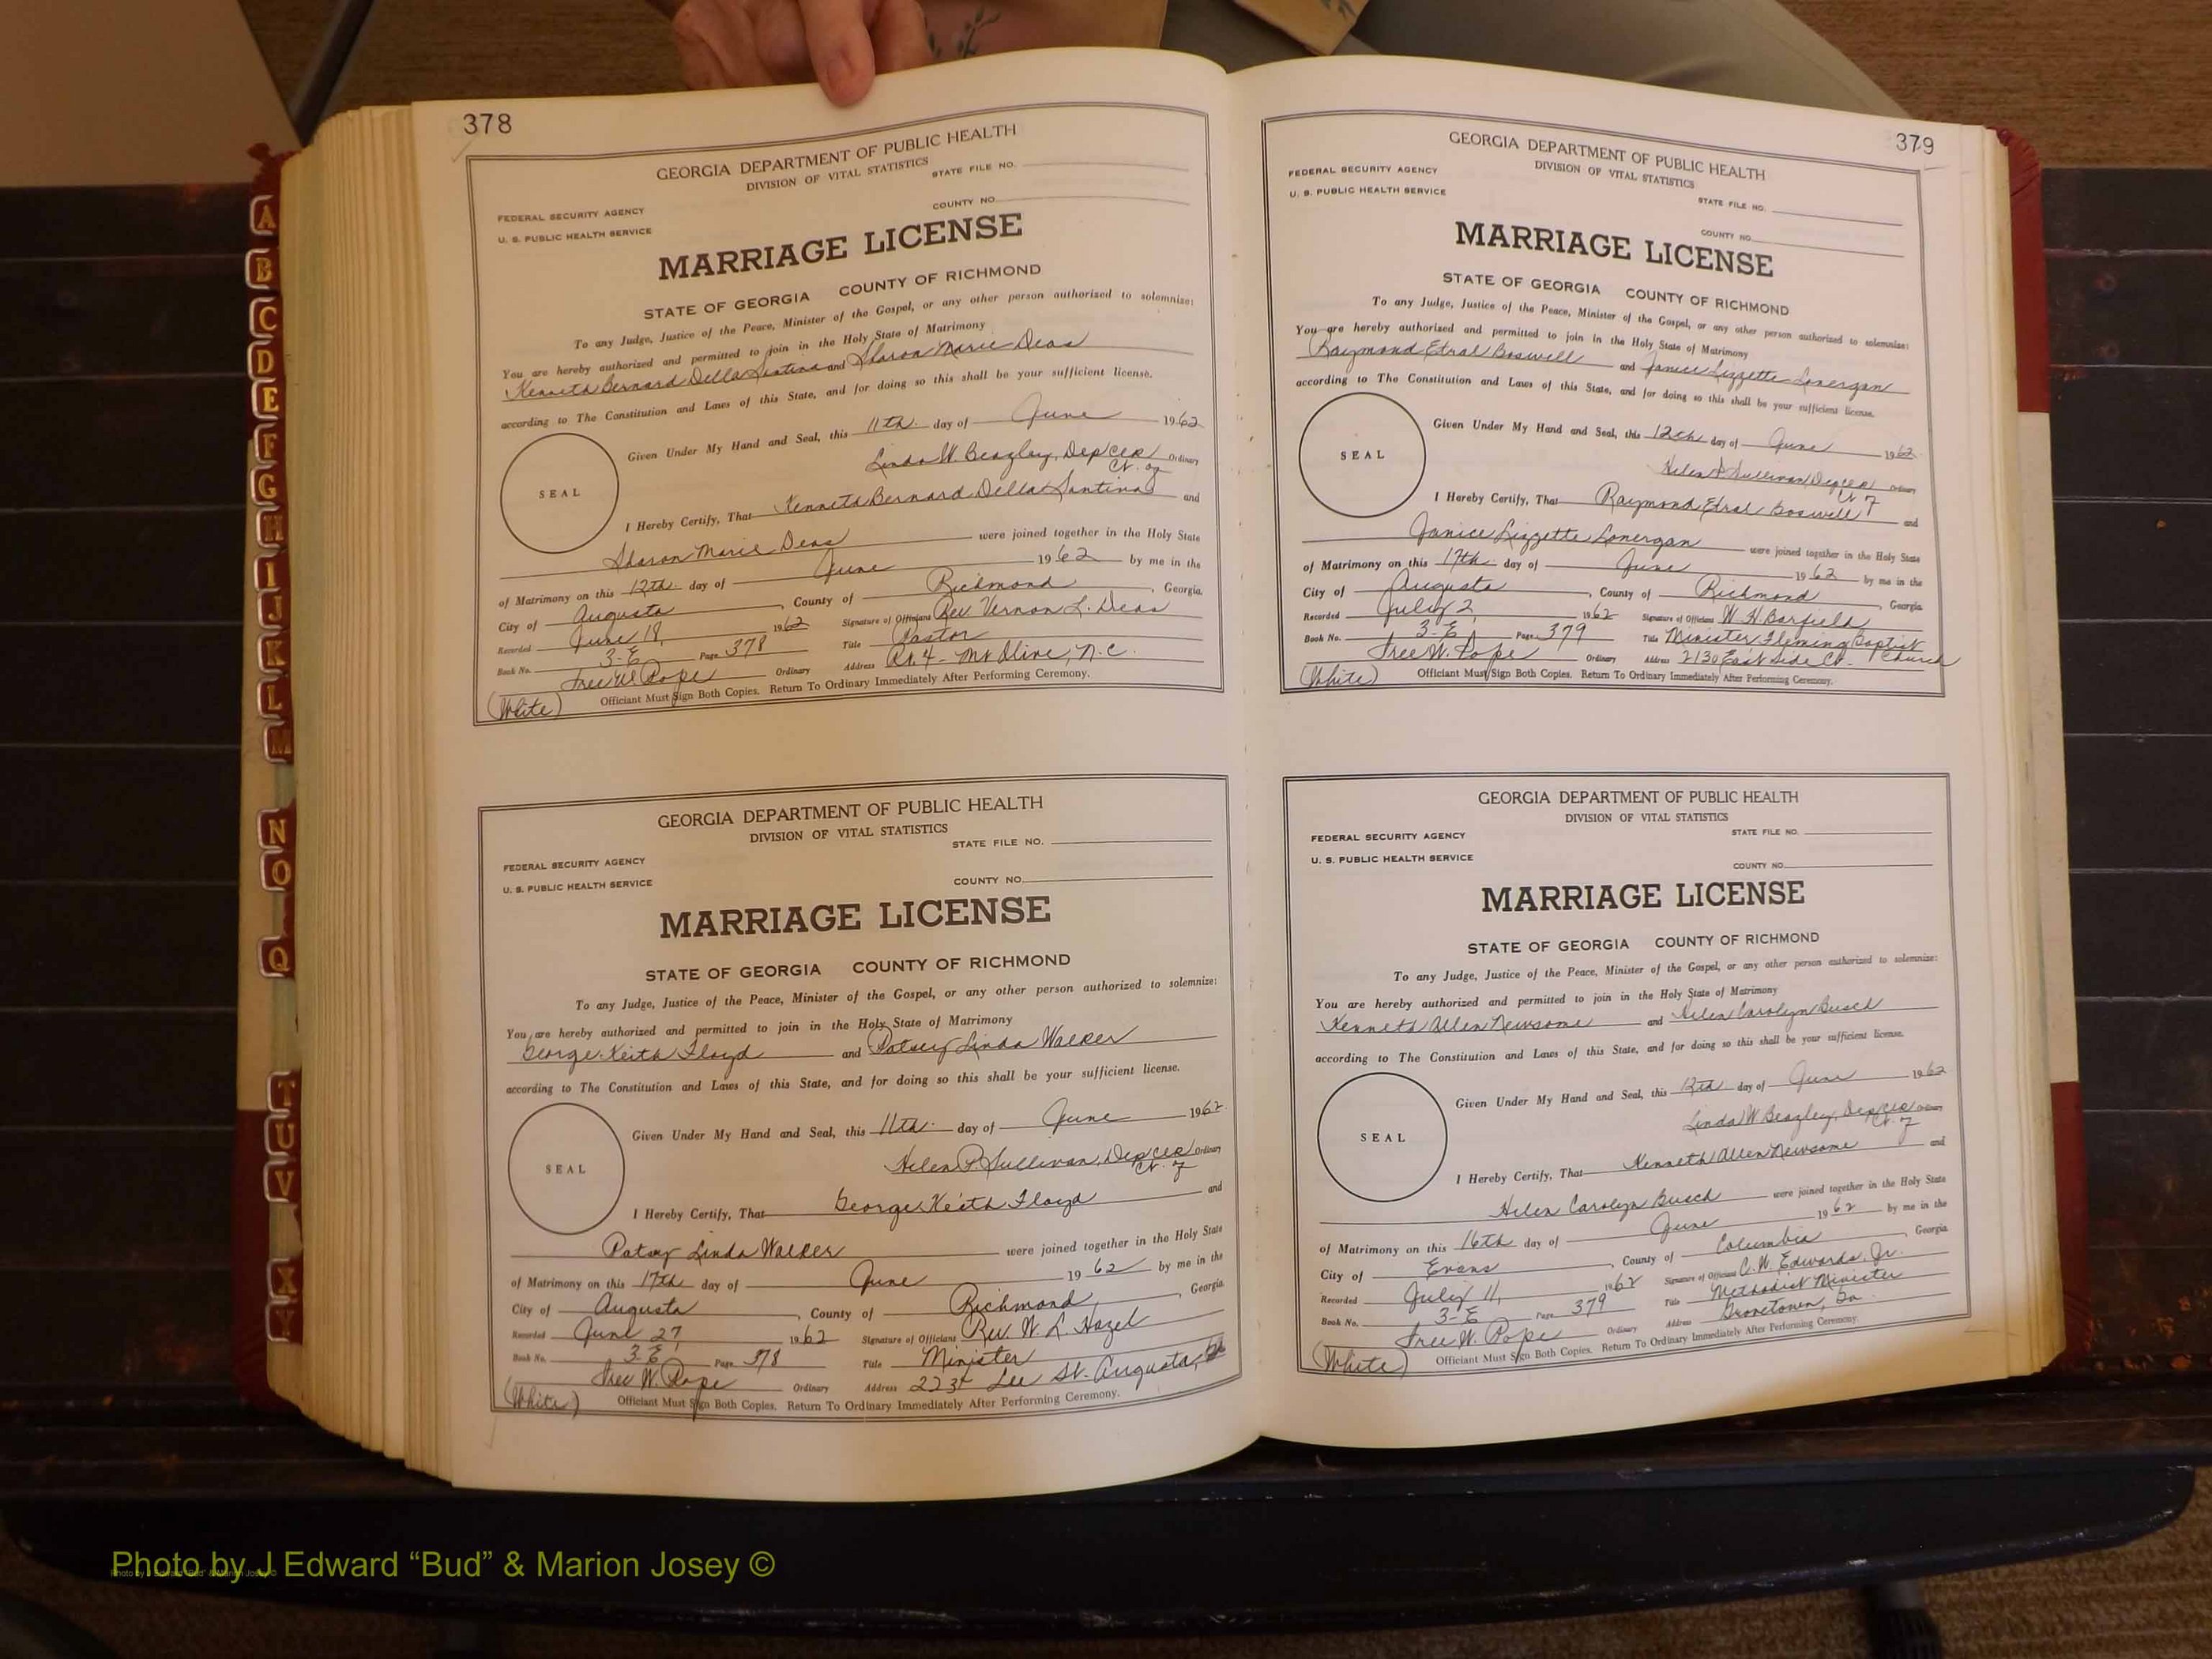 378
GEORGIA DEPARTMENT OF PUBLIC HEALTH
DIVISION OF VITAL STATISTICS
STATE FILE NO.
FEDERAL SECURITY AGENCY
COUNTY NO.
U. S. PUBLIC HEALTH SERVICE
MARRIAGE LICENSE
STATE OF GEORGIA COUNTY OF RICHMOND
To any Judge, Justice of the Peace, Minister of the Gospel, or any other person authorized to solemnize:
You are hereby authorized and permitted to join in the Holy State of Matrimony
Kenneth Bernard Della Santina and Sharon Marie Deas
according to The Constitution and Laws of this State, and for doing so this shall be your sufficient license.
Given Under My Hand and Seal, this 11th. day of June 1962
SEAL
Linda W. Beazley, Dep Clk Ordinary
Ct. of
I Hereby Certify, That Kenneth Bernard Della Santina and
Sharon Marie Deas were joined together in the Holy State
of Matrimony on this 12th. day of June 1962 by me in the
City of Augusta, County of Richmond, Georgia.
Recorded June 18, 1962 Signature of Officiant Rev. Vernon L. Deas
Book No. 3-E Page 378 Title Pastor
Tree W. Pope Ordinary Address Rt. 4 - Mt Olive, N.C.
(White) Officiant Must Sign Both Copies. Return To Ordinary Immediately After Performing Ceremony.
GEORGIA DEPARTMENT OF PUBLIC HEALTH
DIVISION OF VITAL STATISTICS
STATE FILE NO.
FEDERAL SECURITY AGENCY
COUNTY NO.
U. S. PUBLIC HEALTH SERVICE
MARRIAGE LICENSE
STATE OF GEORGIA COUNTY OF RICHMOND
To any Judge, Justice of the Peace, Minister of the Gospel, or any other person authorized to solemnize:
You are hereby authorized and permitted to join in the Holy State of Matrimony
George Keith Floyd and Patsy Linda Walker
according to The Constitution and Laws of this State, and for doing so this shall be your sufficient license.
Given Under My Hand and Seal, this 11th. day of June 1962
SEAL
Helen P. Sullivan, Dep Clk Ordinary
Ct. of
I Hereby Certify, That George Keith Floyd and
Patsy Linda Walker were joined together in the Holy State
of Matrimony on this 17th day of June 1962 by me in the
City of Augusta, County of Richmond, Georgia.
Recorded June 27, 1962 Signature of Officiant Rev. W. L. Hazel
Book No. 3-E Page 378 Title Minister
Tree W. Pope Ordinary Address Lee St. Augusta,
(White) Officiant Must Sign Both Copies. Return To Ordinary Immediately After Performing Ceremony.
379
GEORGIA DEPARTMENT OF PUBLIC HEALTH
DIVISION OF VITAL STATISTICS
FEDERAL SECURITY AGENCY
STATE FILE NO.
U. S. PUBLIC HEALTH SERVICE
COUNTY NO.
MARRIAGE LICENSE
STATE OF GEORGIA COUNTY OF RICHMOND
To any Judge, Justice of the Peace, Minister of the Gospel, or any other person authorized to solemnize:
You are hereby authorized and permitted to join in the Holy State of Matrimony
Raymond Edral Boswell and Janice Lizzette Lonergan
according to The Constitution and Laws of this State, and for doing so this shall be your sufficient license.
Given Under My Hand and Seal, this 12th day of June 1962
SEAL
Helen P Sullivan, Dep Clk Ordinary
Ct. of
I Hereby Certify, That Raymond Edral Boswell and
Janice Lizzette Lonergan were joined together in the Holy State
of Matrimony on this 17th. day of June 1962 by me in the
City of Augusta, County of Richmond, Georgia
Recorded July 2, 1962 Signature of Officiant W. H. Barfield
Book No. 3-E Page 379 Title Minister, Fleming Baptist
Tree W. Pope Ordinary Address 2130 East Side Ct. - Church
(White) Officiant Must Sign Both Copies. Return To Ordinary Immediately After Performing Ceremony.
GEORGIA DEPARTMENT OF PUBLIC HEALTH
DIVISION OF VITAL STATISTICS
FEDERAL SECURITY AGENCY
STATE FILE NO.
U. S. PUBLIC HEALTH SERVICE
COUNTY NO.
MARRIAGE LICENSE
STATE OF GEORGIA COUNTY OF RICHMOND
To any Judge, Justice of the Peace, Minister of the Gospel, or any other person authorized to solemnize:
You are hereby authorized and permitted to join in the Holy State of Matrimony
Kenneth Allen Newsome and Helen Carolyn Busch
according to The Constitution and Laws of this State, and for doing so this shall be your sufficient license.
Given Under My Hand and Seal, this 12th day of June 1962
SEAL
Linda W Beazley, Dep Clk Ordinary
Ct. of
I Hereby Certify, That Kenneth Allen Newsome and
Helen Carolyn Busch were joined together in the Holy State
of Matrimony on this 16th day of June 1962 by me in the
City of Evans, County of Columbia, Georgia
Recorded July 11, 1962 Signature of Officiant C. W. Edwards, Jr.
Book No. 3-E Page 379 Title Methodist Minister
Tree W. Pope Ordinary Address Grovetown, Ga.
(White) Officiant Must Sign Both Copies. Return To Ordinary Immediately After Performing Ceremony.
A
B
C
D
E
F
G
H
I
J
K
L
M
N
O
Q
T
U
V
X
Y
Photo by J Edward “Bud” & Marion Josey ©
Photo by J Edward “Bud” & Marion Josey ©